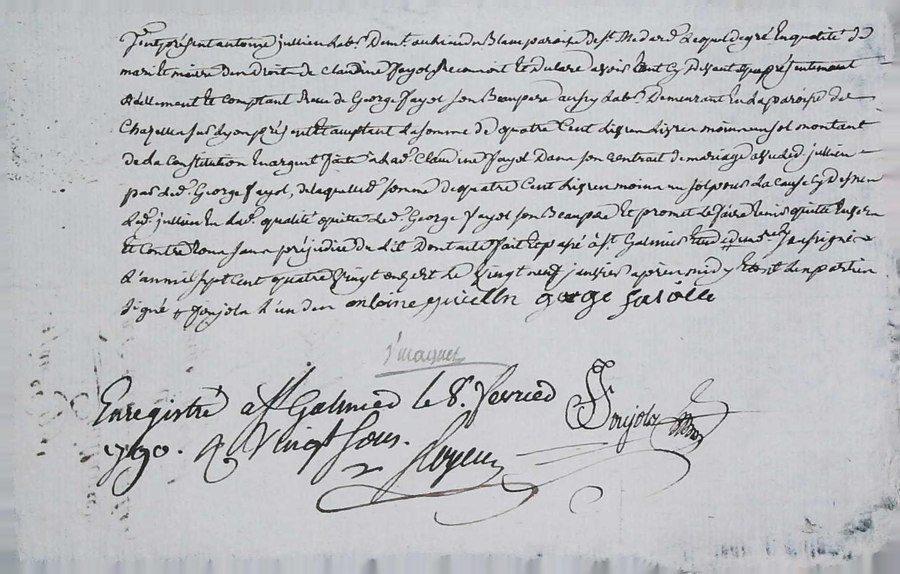 fut présent antoine jullien lab.r Dem.t au lieu du Blanc paroisse de S.t Medard lequel degré En qualité de
mari et maitre des Droits de Claudine fayol Reconnoit et declare avoir Cy Devant et présentement
Réellement et Comptant Reçu de George fayol Son Beaupere aussy lab.r Demeurant En la paroisse de
Chazelles Sur Lyon présent et acceptant la Somme de quatre Cent livres moins un Sol montant
de la Constitution En argent faite a lad.e Claudine fayol Dans Son Contrat de mariage avec led jullien
par led. George fayol, de laquelle d.e Somme de quatre Cent livres moins un Sol pour la Cause Cy Dessus
led. jullien En lad.e qualité quitte led. George fayol Son Beaupere et promet le faire tenir quitte Envers
Et Contre tous Sans préjudice Dont acte fait et passé à S.t Galmier Etude du no.re Soussigné
L'an mil Sept Cent quatre Vingt dix Et le Vingt neuf janvier après midy Et ont les parties
Signé antoine juielln george faiolle
Enregistré à S.t Galmier le 8. fevrier
1790. R Vingt Sous.